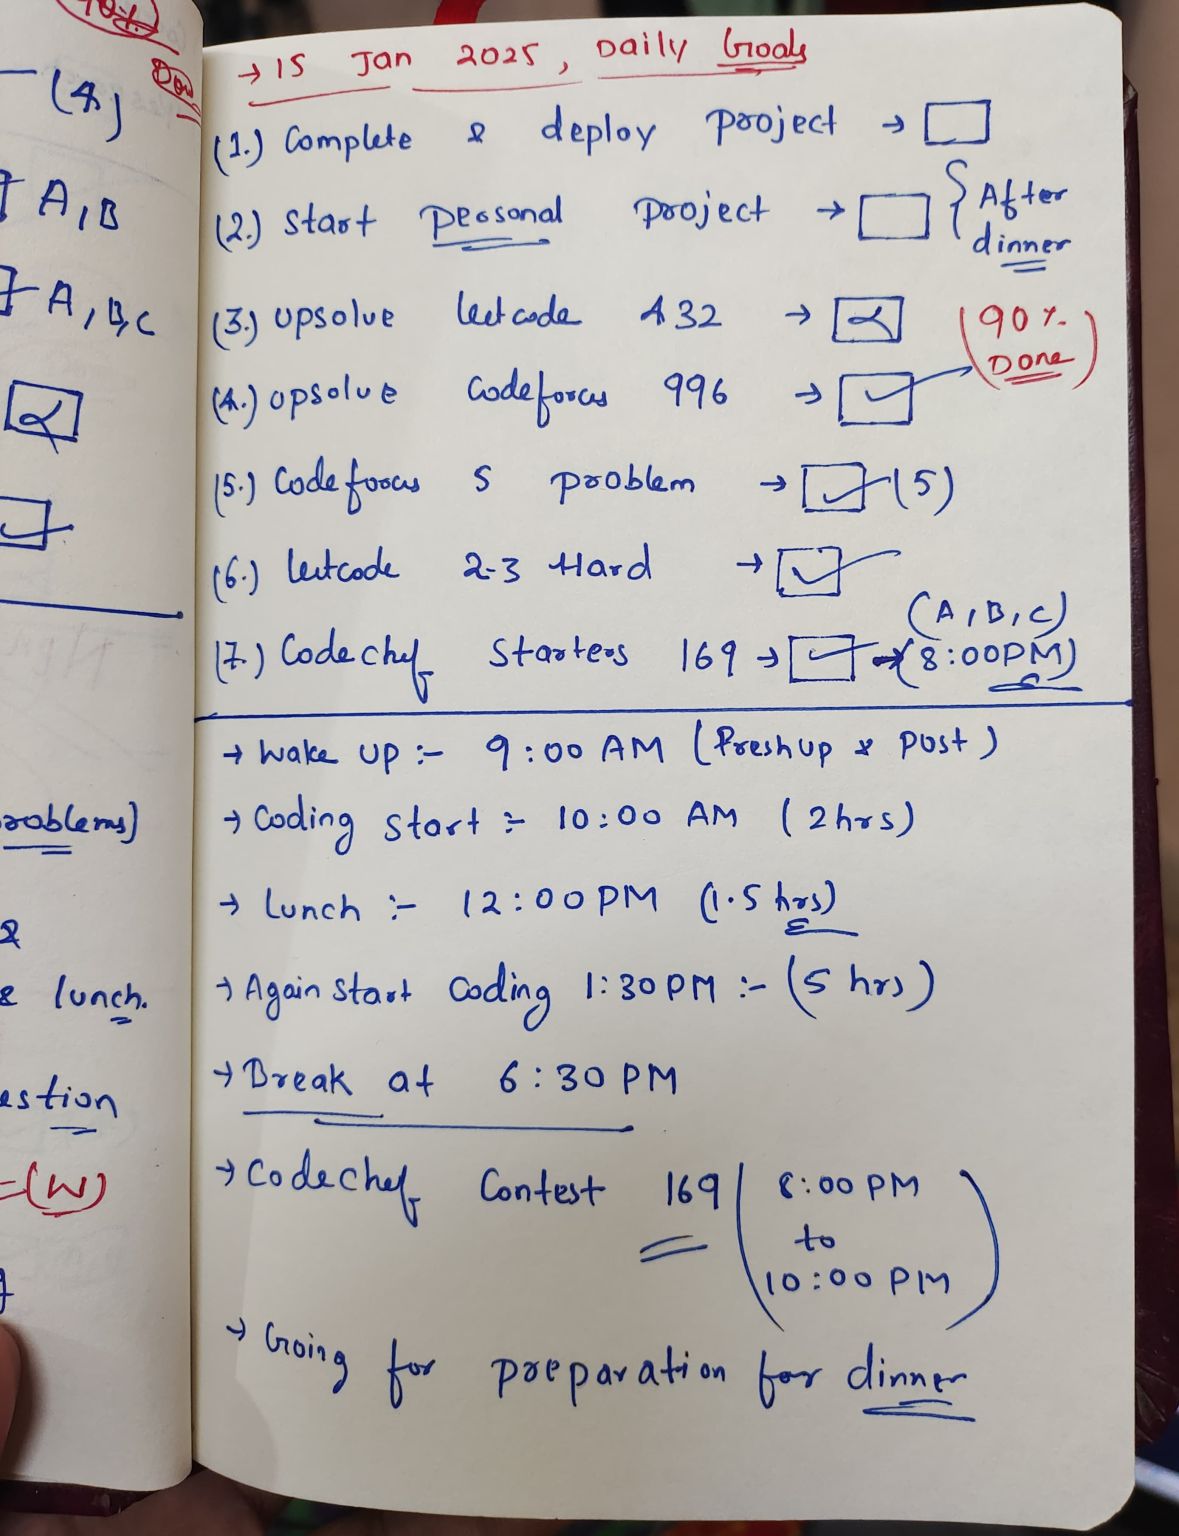 → 15 Jan 2025, Daily Goals
(1.) Complete & deploy project →
(2.) Start personal project → } After dinner
(3.) upsolve leetcode 432 →
(90% Done)
(4.) upsolve codeforces 996 →
(5.) Codeforces 5 problem → (5)
(6.) leetcode 2-3 Hard →
(A, B, C)
(7.) Codechef Starters 169 → → (8:00PM)
→ Wake up :- 9:00 AM (Freshup & Post)
→ Coding start :- 10:00 AM (2hrs)
→ Lunch :- 12:00PM (1.5 hrs)
→ Again Start Coding 1:30PM :- (5 hrs)
→ Break at 6:30 PM
→ Codechef Contest 169 (8:00 PM to 10:00 PM)
→ Going for preparation for dinner
(4)
A, B
A, B, C
roblems]
&
& lunch.
estion
=(W)